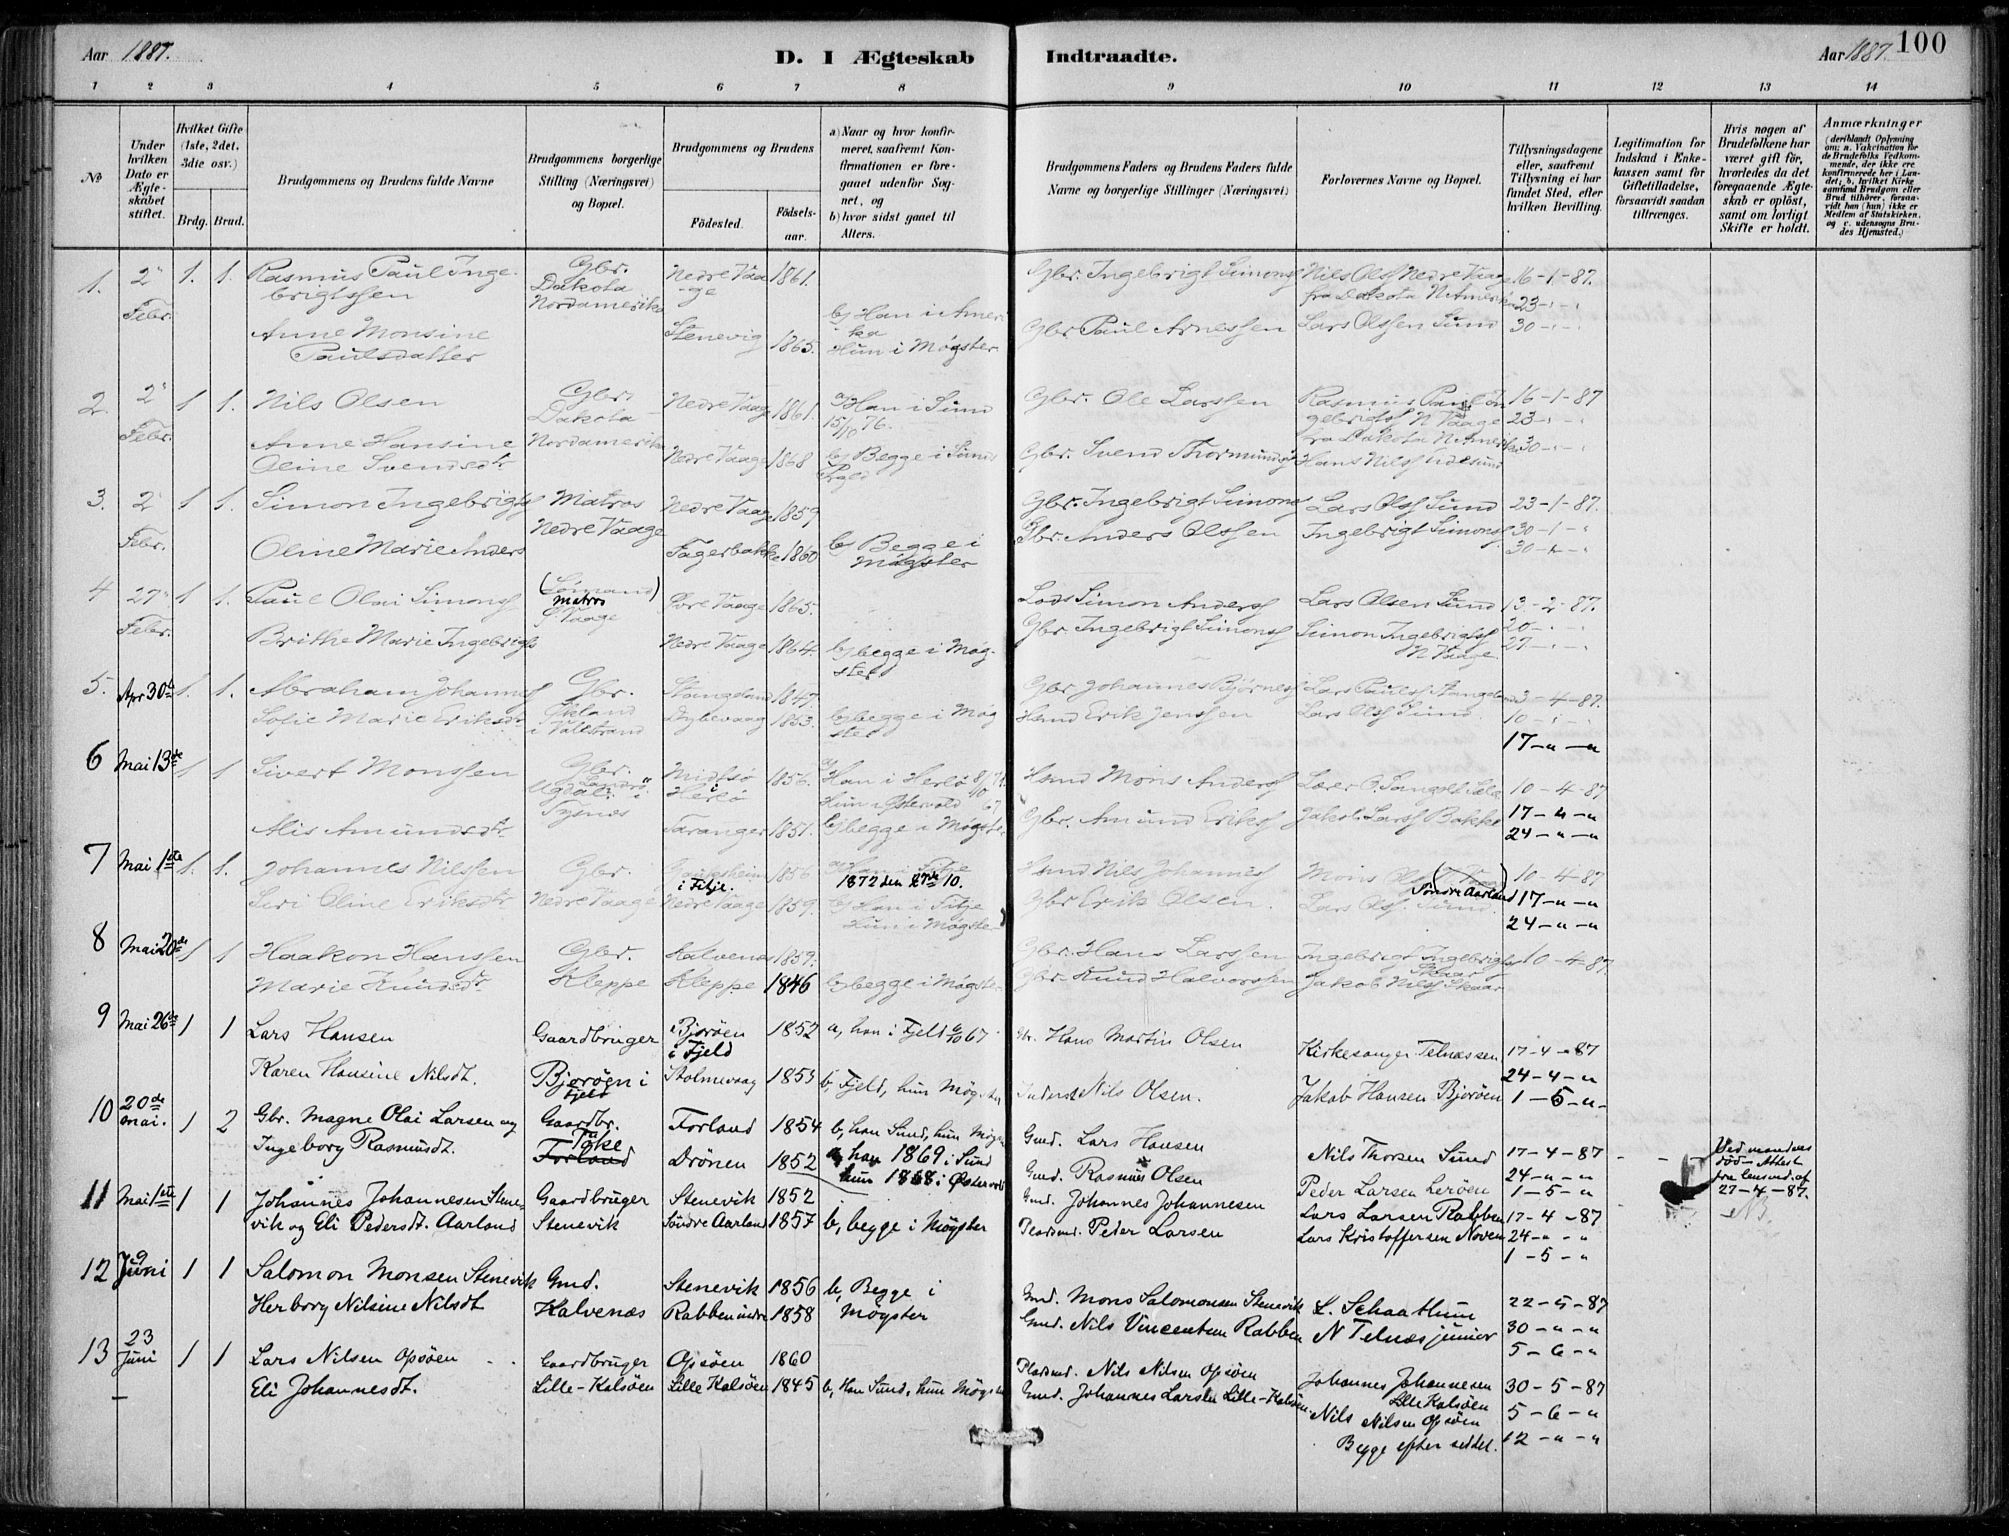 Aar 1887.
D. I Ægteskab
Indtraadte.
Aar 1887.
100
1 2 3 4 5 6 7 8
9 10 11 12 13 14
No
Under hvilken Dato er Ægteskabet stiftet.
Hvilket Gifte (1ste, 2det, 3die osv.)
Brdg. Brud.
Brudgommens og Brudens fulde Navne
Brudgommens borgerlige Stilling (Næringsvei) og Bopæl.
Brudgommens og Brudens
Födested.
Födsels-aar.
a) Naar og hvor konfirmeret, saafremt Konfirmationen er foregaaet udenfor Sognet, og
b) hvor sidst gaaet til Alters.
Brudgommens Faders og Brudens Faders fulde Navne og borgerlige Stillinger (Næringsvei)
Forlovernes Navne og Bopæl.
Tillysningsdagene eller, saafremt Tillysning ei har fundet Sted, efter hvilken Bevilling.
Legitimation for Indskud i Enkekassen samt for Giftetilladelse, forsaavidt saadan tiltrænges.
Hvis nogen af Brudefolkene har været gift för, hvorledes da det foregaaende Ægteskab er oplöst, samt om lovligt Skifte er holdt.
Anmærkninger
(deriblandt Oplysning om: a. Vakcination for de Brudefolks Vedkommende, der ikke ere konfirmerede her i Landet; b. hvilket Kirkesamfund Brudgom eller Brud tilhörer, forsaavidt han (hun) ikke er Medlem af Statskirken, og c. udensogns Brudes Hjemsted.)
1. 2 Febr. 1. 1. Rasmus Paul Ingebrigtssen Gbr. Dakota Nordamerika Nedre Vaage 1861.
Gbr. Ingebrigt Simonss Nils Olss Nedre Vaage fra Dakota N Amerika 16-1-87.
23-"-"
Anne Monsine Paulsdatter Stenevig 1865. b) Han i Amerika Hun i Møgster
Gbr. Paul Arnessen Lars Olssen Sund 30-"-"
2. 2 Febr. 1 1. Nils Olsen Gbr. Dakota Nordamerika Nedre Vaage 1861. a) Han i Sund 15/10 76.
Gbr. Ole Larssen Rasmus Paul Ingebrigtss N Vaage fra Dakota N Amerika 16-1-87
23-"-"
Anne Hansine Oline Svendsdtr Nedre Vaage 1868 b) Begge i Sunds Prgld
Gbr. Svend Thormundss Hans Nilss 30-"-"
3. 2 Febr. 1 1. Simon Ingebrigtss Matros Nedre Vaage Nedre Vaage 1859
Gbr. Ingebrigt Simonss Lars Olss Sund 23-1-87.
Oline Marie Anders Fagerbakke 1860 b) Begge i Møgster
Gbr. Anders Olssen Ingebrigt Simonss 30-1-"
4 27 Febr. 1 1. Paul Olai Simonss (Sömand) Matros Vaage 1865.
Lods Simon Anderss Lars Olsen Sund 13.-2-87.
20-"-"
Brithe Marie Ingebrigts Nedre Vaage 1864. b) begge i Møgster
Gbr. Ingebrigt Simonss Simon Ingebrigtss N Vaage 27-"-"
5. Apr 30te 1. 1. Abraham Johanness Gbr. i Valestrand Stangeland 1847.
Gbr Johannes Bjørness Lars Paulss Stangeland 3-4-87.
Sofie Marie Eriksdtr Dybevaag 1853. b) begge i Møgster
Hmd Erik Jenssen Lars Olss Sund. 10-"-"
17-"-"
6 Mai 13de 1 1 Sivert Monssen Gbr. Tysnes Midtsø i Herlö 1856. a) Han i Herlö Hun i Østervold
Hmd Mons Anderss Lærer 10-4-87
Alis Amundsdtr. 1851. b) begge i Møgster
Gbr. Amund Erikss Jakob Larss Bakke 17-"-"
24-"-"
7 Mai 1ste 1. 1. Johannes Nilssen Gbr. i Fitje. 1856 1872 den 27de 10.
Hmd Nils Johanness Mons (Söndre Aarland) 10-4-87
Siri Oline Eriksdtr. Nedre Vaage Nedre Vaage 1859. b) Han i Fitje Hun i Møgster
Gbr Erik Olsen. Lars Olss Sund. 17-"-"
24-"-"
8 Mai 20de 1 1 Haakon Hanssen Gbr. Kleppe Kalvenæs 1859.
Gbr. Hans Larssen Ingebrigt Ingebrigtss Skaar 10-4-87.
Marie Knudsdtr. Kleppe 1846 b) begge i Møgster
Gbr Knud Halvorssen Jakob Nilss Skaar
9 Mai 26de 1 1 Lars Hansen Gaardbruger Bjoröen i Fjeld 1852 a, han i Fjeld 67
Hans Martin Olsen Kirkesanger Telnæssen 17-4-87
24-4-"
Karen Hansine Nilsdt. Bjoröen i Fjeld Stolmevaag 1853 b, Fjeld, hun Møgster
Inderst Nils Olsen. Jakob Hansen Bjoröen 1-5-"
10 20de mai. 1 2 Gbr. Magne Olai Larsen og Gaardbr. Forland 1854 b, han Sund, hun Møgster
Gmd. Lars Hansen Nils Thorsen Sund 17-4-87 Ved mandens död - Attest fra lensmd. af 27-4-87.
Ingeborg Rasmusdt. Toke Forland Drönen 1852 a, han 1869 i Sund hun 1868 i Østervold
Gmd. Rasmus Olsen Peder Larsen Leröen 24-"-"
1-5-"
11 Mai 1ste 1 1 Johannes Johannesen Stenevik og Eli Pedersdt. Aarland Gaardbruger Stenevik Stenevik 1852
Gmd. Johannes Johannesen Lars Larsen Rabben 17-4-87
Söndre Aarland 1857 b, begge i Møgster
Pladsmd. Peder Larsen Lars Kristoffersen Noven 24-"-"
1-5-"
12 9 Juni 1 1 Salomon Monsen Stenevik Gmd. Stenevik 1856 b, Begge i Møgster
Gmd. Mons Salomonsen Stenevik L. Schaathun 22-5-87
Herborg Nilsine Nilsdt Kalvenæs Rabben indre 1858
Gmd. Nils Vincentsen Rabben N Telnæs junior 30-"-"
5-6-"
13 23 Juni 1 1 Lars Nilsen Opsöen Gaardbruger Opsöen 1860
Pladsmd. Nils Nilsen Opsöen Johannes Johannesen Lille Kalsöen 30-5-87
Eli Johannesdt. Lille-Kalsöen Lille Kalsöen 1845 b, Han Sund, hun Møgster
Gmd. Johannes Larsen Lille-Kalsöen. Nils Nilsen Opsöen 5-6-"
Begge efter seddel. 12-"-"